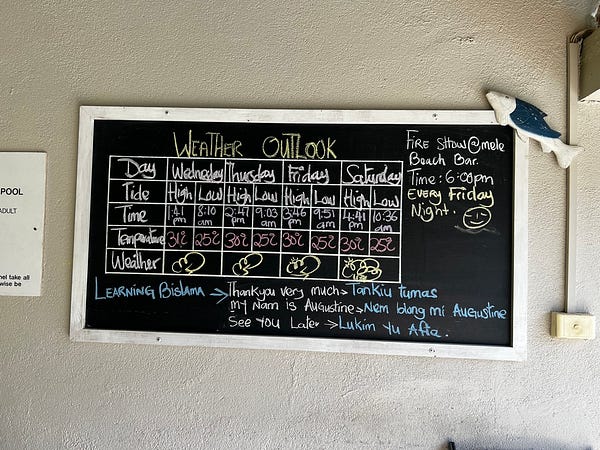 WEATHER OUTLOOK
Day Wednesday Thursday Friday Saturday
Tide High Low High Low High Low High Low
Time 1:41 pm 8:10 am 2:47 pm 9:03 am 3:46 pm 9:51 am 4:41 pm 10:36 am
Temperature 31°c 25°c 30°c 25°c 30° 25°c 30° 25°c
Weather
LEARNING Bislama → Thankyou very much → Tankiu tumas
My Nam is Augustine → Nem blong mi Augustine
See You Later → Lukim Yu Afta.
FIRE SHOW @ mele
Beach Bar.
Time: 6:00pm
EVERY Friday
Night.
POOL
ADULT
nel take all
wise be